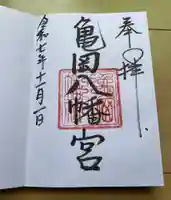 奉拝
亀田八幡宮
令和七年十一月一日